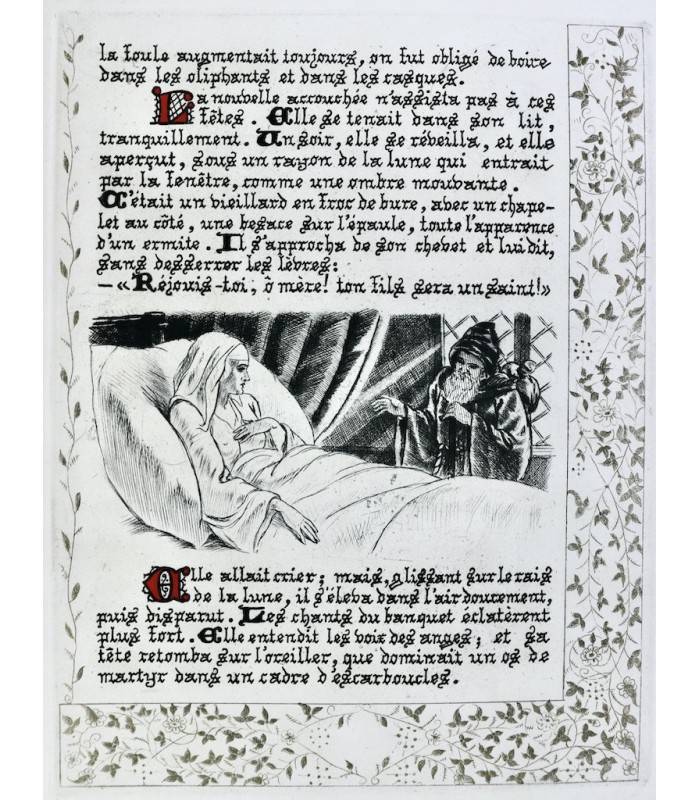 la foule augmentait toujours, on fut obligé de boire
dans les oliphants et dans les casques.
La nouvelle accouchée n'assista pas à ces
fêtes. Elle se tenait dans son lit,
tranquillement. Un soir, elle se réveilla, et elle
aperçut, sous un rayon de la lune qui entrait
par la fenêtre, comme une ombre mouvante.
C'était un vieillard en froc de bure, avec un chape-
let au côté, une besace sur l'épaule, toute l'apparence
d'un ermite. Il s'approcha de son chevet et lui dit,
sans desserrer les lèvres:
—«Réjouis-toi, ô mère! ton fils sera un saint!»
Elle allait crier; mais, glissant sur le rais
de la lune, il s'éleva dans l'air doucement,
puis disparut. Les chants du banquet éclatèrent
plus fort. Elle entendit les voix des anges; et sa
tête retomba sur l'oreiller, que dominait un os de
martyr dans un cadre d'escarboucles.